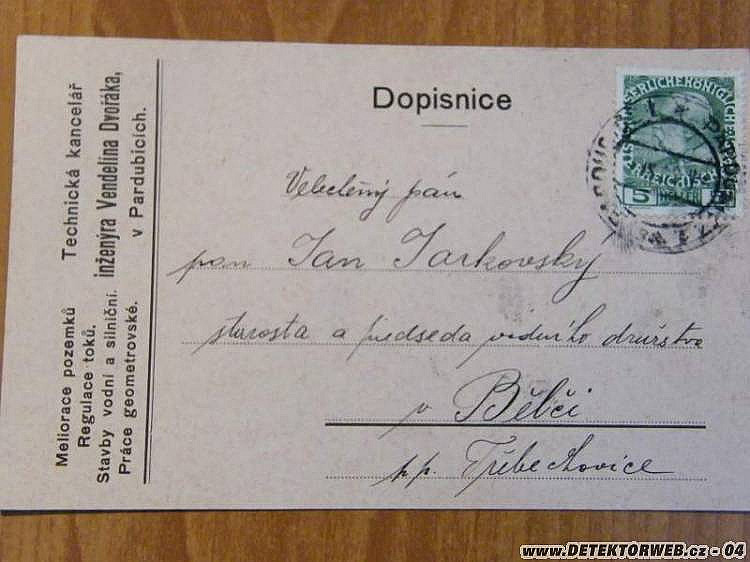 Technická kancelář
inženýra Vendelína Dvořáka,
v Pardubicích.
Meliorace pozemků
Regulace toků.
Stavby vodní a silniční.
Práce geometrovské.
Dopisnice
Velectěný pán
pan Jan Jarkovský
starosta a předseda vodního družstva
v Bělči
p.p. Třebechovice
5
www.DETEKTORWEB.cz - 04